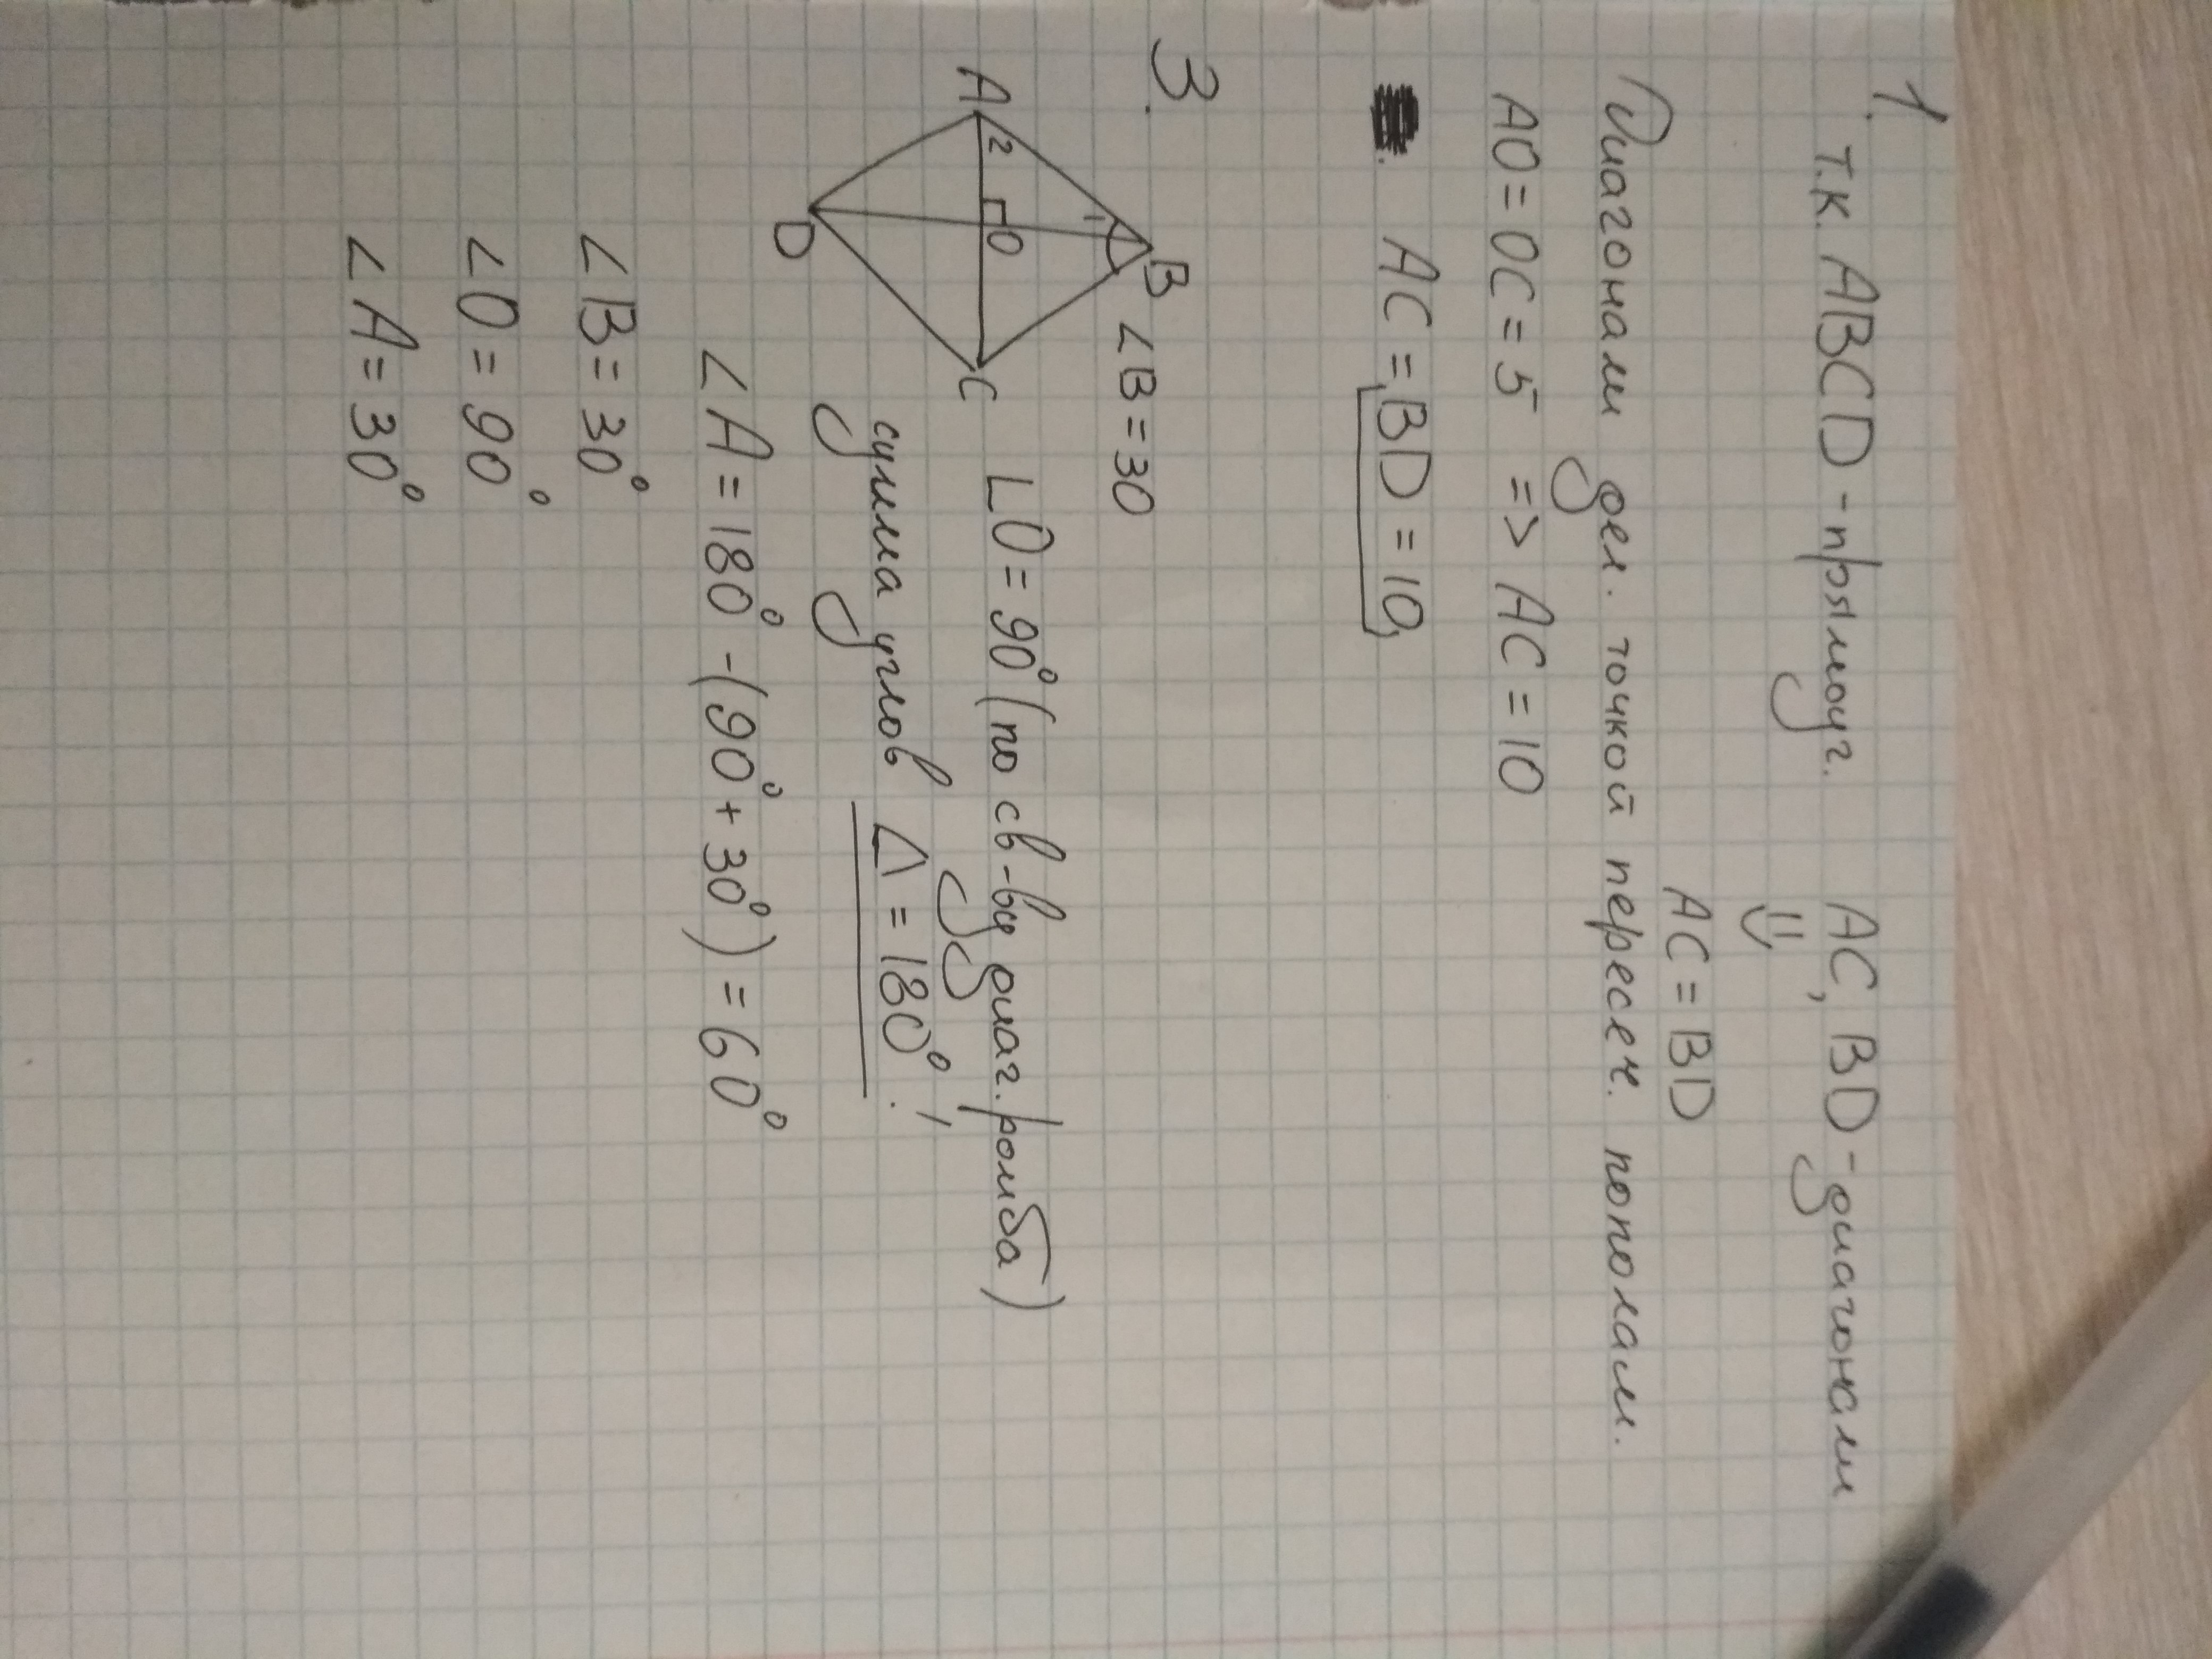 1. т.к. ABCD - прямоуг. AC, BD - диагонали
AC = BD
Диагонали дел. точкой пересеч. пополам.
AO = OC = 5 => AC = 10
AC = BD = 10,
3.
A B C D O 1 2
∠B = 30
∠O = 90° (по св-ву диаг. ромба)
сумма углов Δ = 180°!
∠A = 180° - (90° + 30°) = 60°
∠B = 30°
∠O = 90°
∠A = 30°